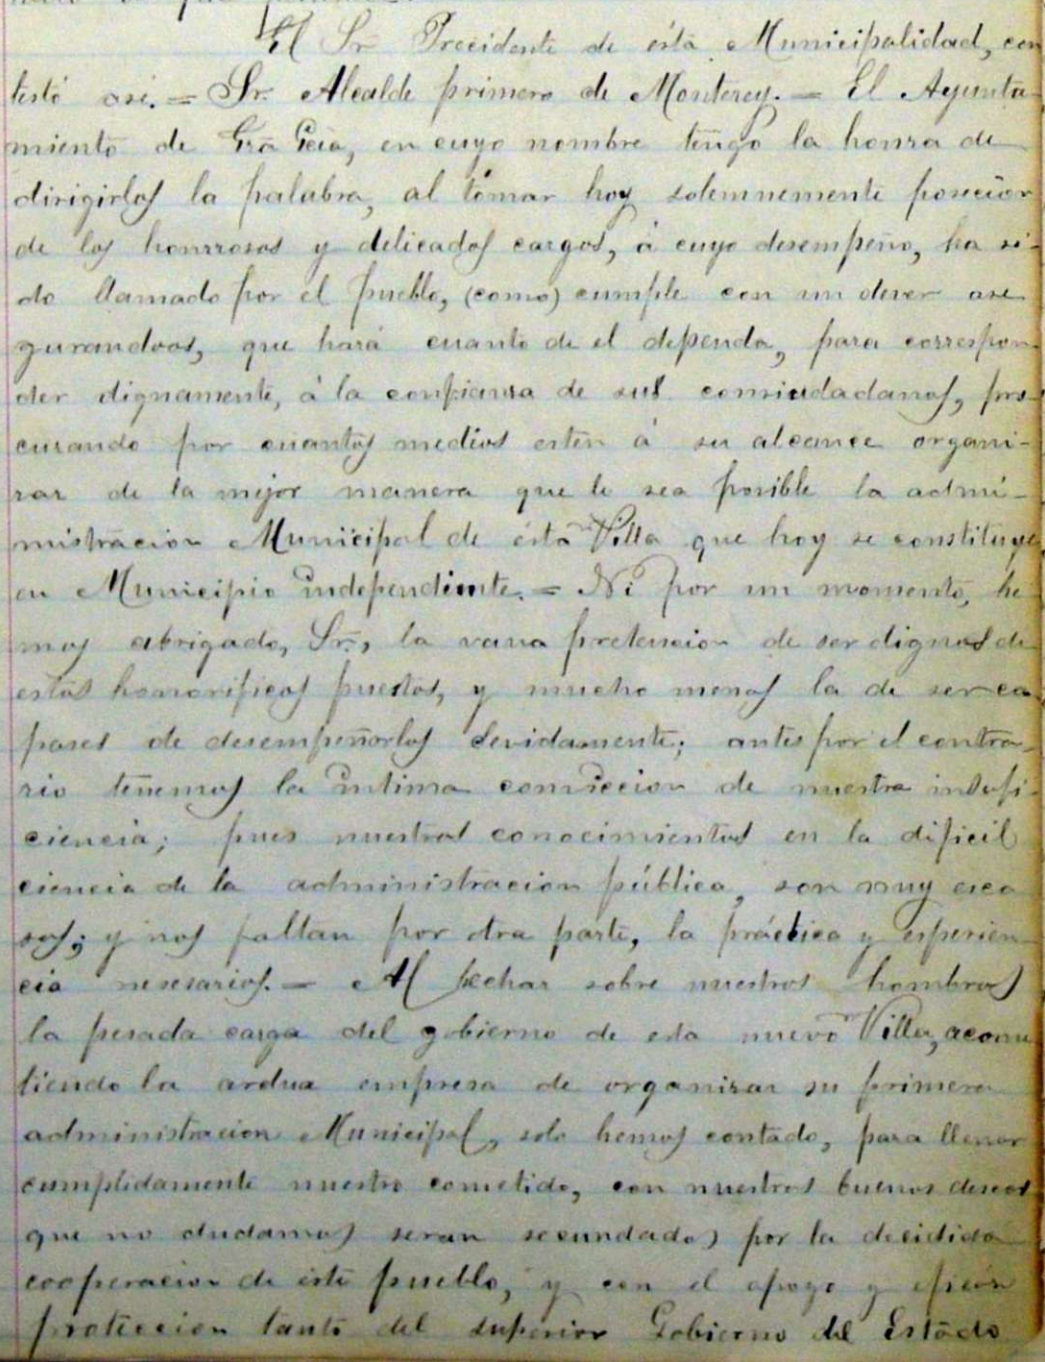 El Sr. Precidente de ésta Municipalidad, con
testó asi. = Sr. Alcalde primero de Monterey. = El Ayunta-
miento de Gra Gcia, en cuyo nombre tengo la honra de
dirigirlos la palabra, al tomar hoy solemnemente posecion
de los honrrosos y delicados cargos, á cuyo desempeño, ha si-
do llamado por el pueblo, (como) cumple con un dever ase
gurandoos, que hará cuanto de el dependa, para correspon-
der dignamente, á la confianza de sus conciudadanos, pro-
curando por cuantos medios esten á su alcance organi-
zar de la mejor manera que le sea posible la admi-
nistracion Municipal de ésta Villa que hoy se constituye
en Municipio independiente. = Ni por un momento, he
mos abrigado, Sr., la vana pretencion de ser dignos de
estos honorificos puestos, y mucho menos la de ser ca
pases de desempeñarlos devidamente; antes por el contra-
rio tenemos la intima conviccion de nuestra insufi-
ciencia; pues nuestros conocimientos en la dificil
ciencia de la administracion pública, son muy esca
sos; y nos faltan por otra parte, la práctica y esperien-
cia nesesarios. = Al hechar sobre nuestros hombros
la pesada carga del gobierno de esta nueva Villa, acome
tiendo la ardua empresa de organisar su primera
administracion Municipal, solo hemos contado, para llenar
cumplidamente nuestro cometido, con nuestros buenos deseos
que no dudamos seran secundados por la decidida
cooperacion de éste pueblo, y con el apoyo y eficás
proteccion tanto del superior Gobierno del Estado